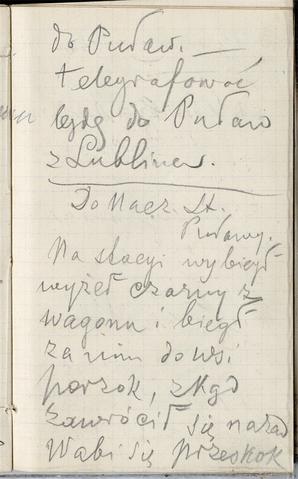 do Puław. —
telegrafować
będę do Puław
z Lublinea.
Do Nacz. St.
Puławy.
Na stacyi wybiegł
wyżeł czarny z
wagonu i biegł
za nim do wsi
porzok, zkąd
zawrócił się nazad
Wabi się przeskok